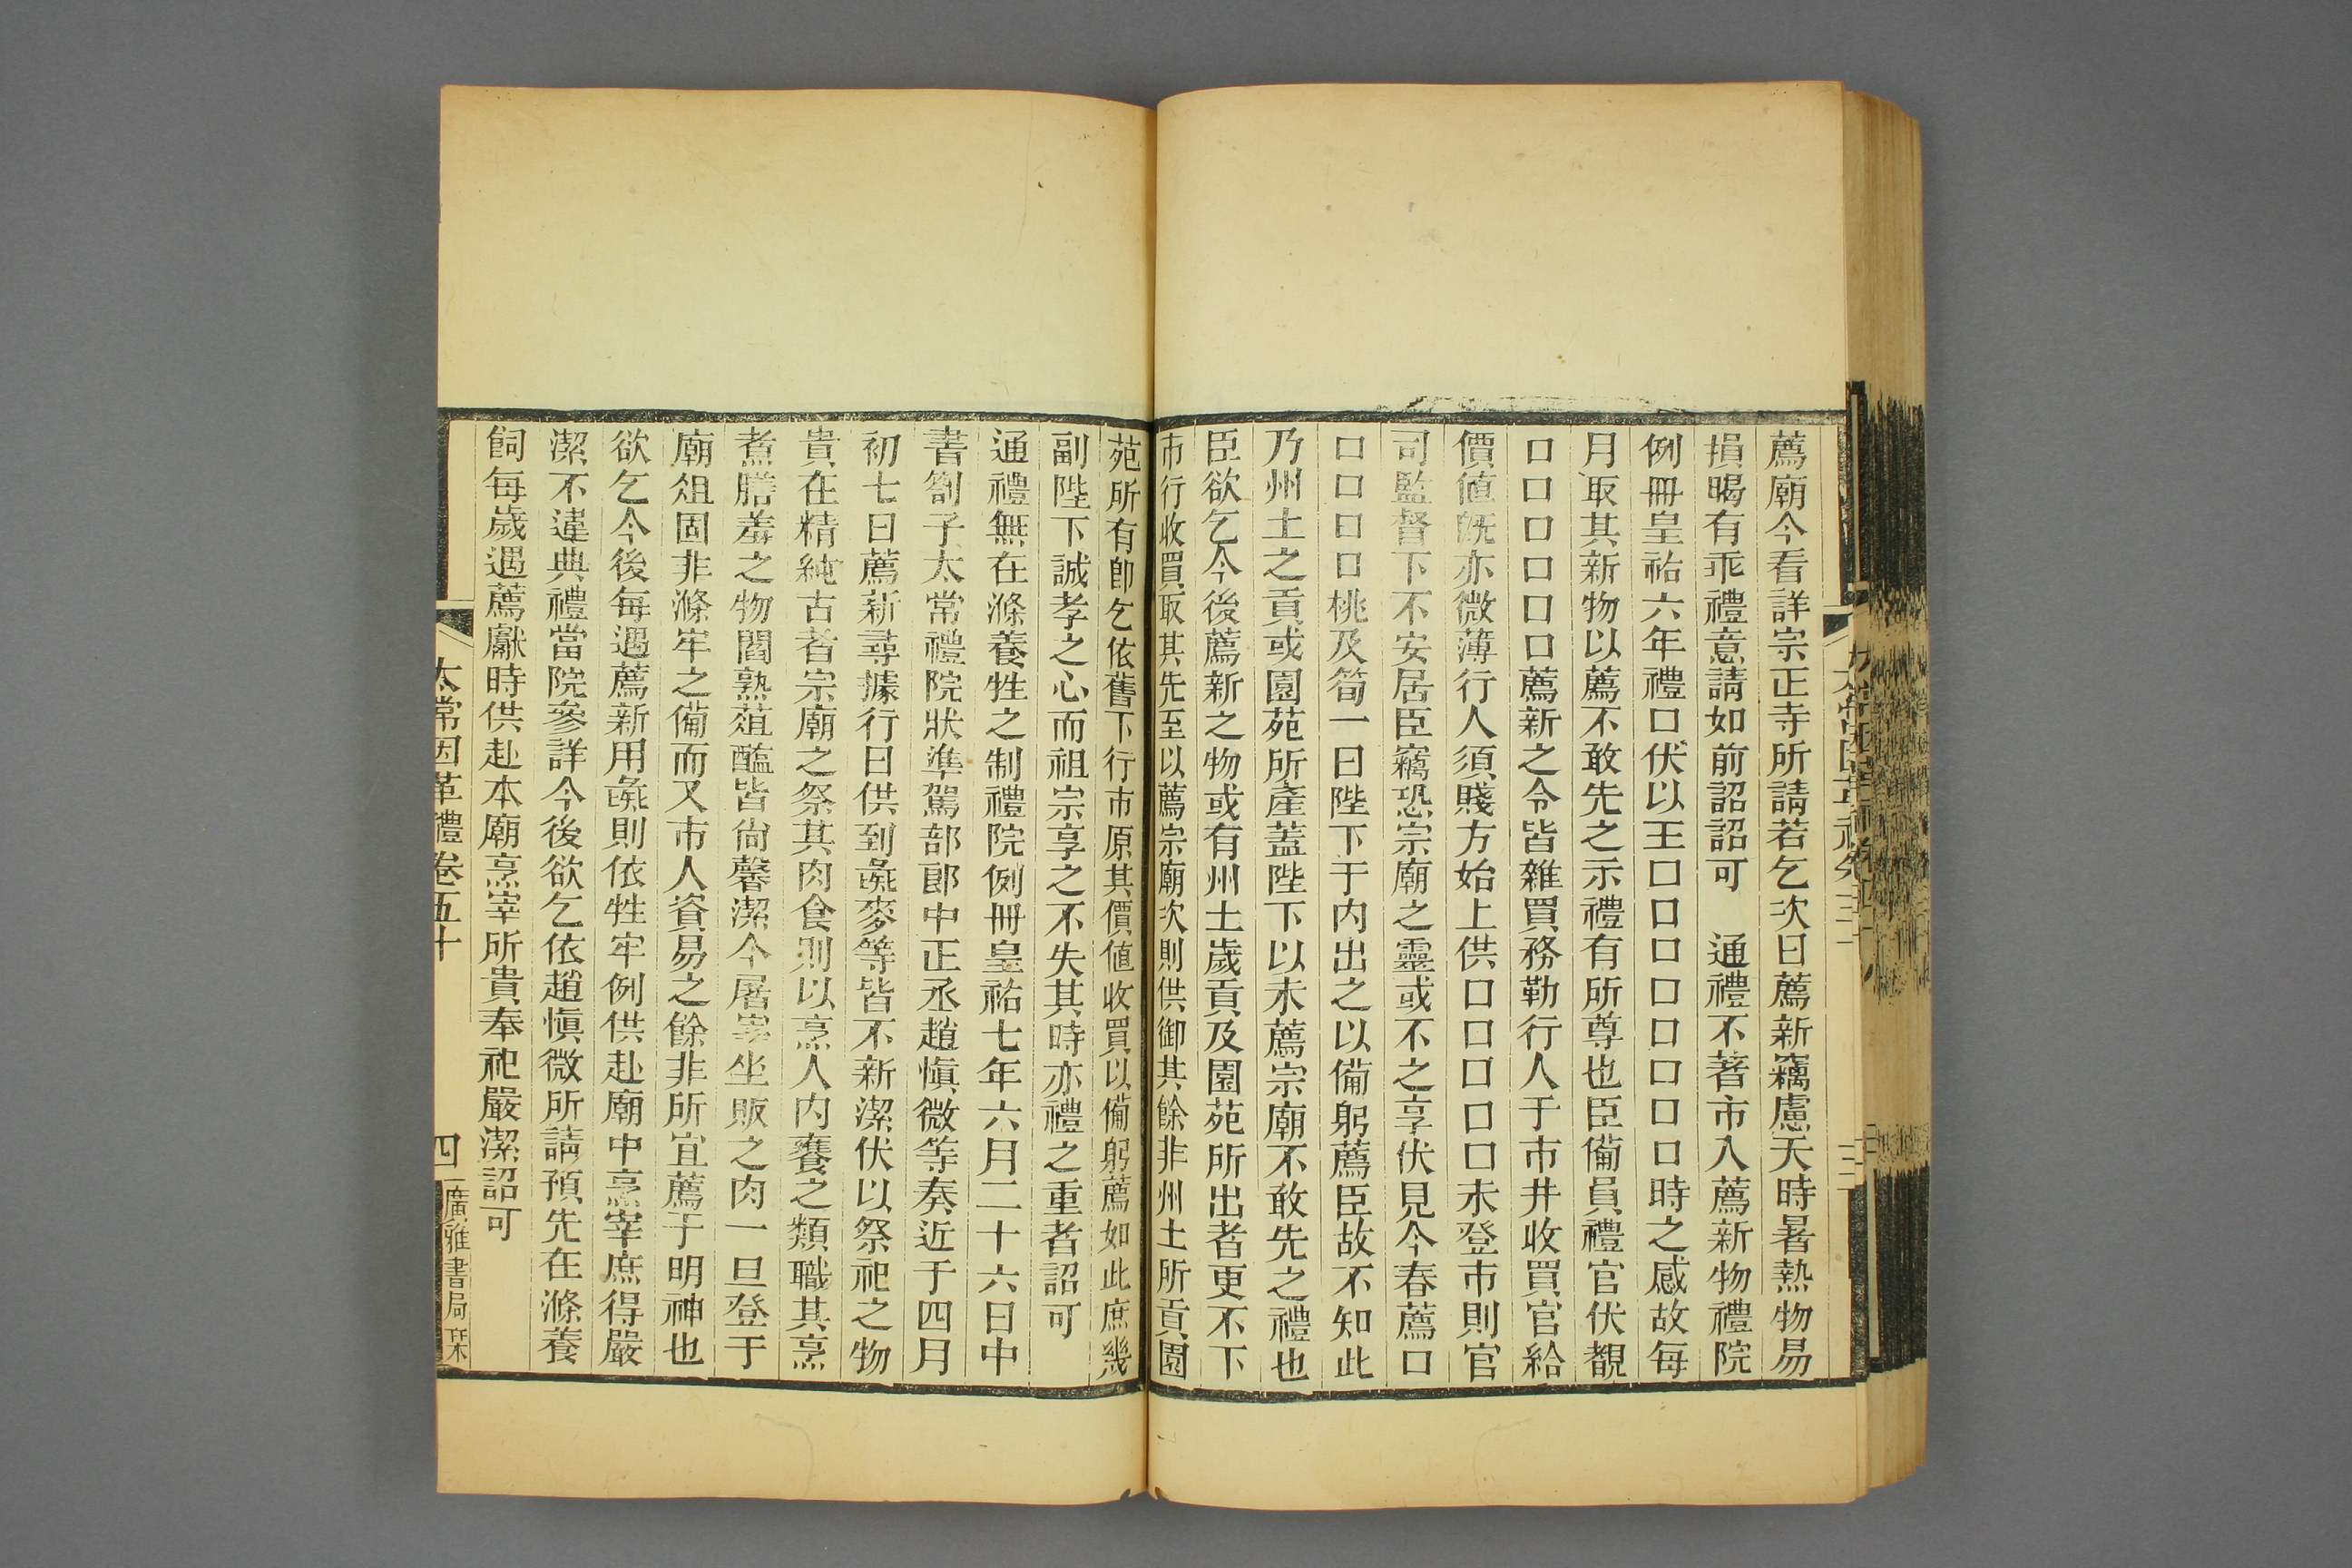 薦廟今看詳宗正寺所請若乞次日薦新竊慮天時暑熱物易
損暍有乖禮意請如前詔詔可　通禮不著市入薦新物禮院
例冊皇祐六年禮口伏以王口口口口口口口口時之感故每
月取其新物以薦不敢先之示禮有所尊也臣備員禮官伏覩
口口口口口口薦新之令皆雜買務勒行人于市井收買官給
價値旣亦微薄行人須賤方始上供口口口口口未登市則官
司監督下不安居臣竊恐宗廟之靈或不之享伏見今春薦口
口口口口桃及筍一日陛下于內出之以備躬薦臣故不知此
乃州土之貢或園苑所產蓋陛下以未薦宗廟不敢先之禮也
臣欲乞今後薦新之物或有州土歲貢及園苑所出者更不下
市行收買取其先至以薦宗廟次則供御其餘非州土所貢園
苑所有卽乞依舊下行市原其價値收買以備躬薦如此庶幾
副陛下誠孝之心而祖宗享之不失其時亦禮之重者詔可
通禮無在滌養牲之制禮院例冊皇祐七年六月二十六日中
書劄子太常禮院狀準駕部郎中正丞趙愼微等奏近于四月
初七日薦新尋據行日供到彘麥等皆不新潔伏以祭祀之物
貴在精純古者宗廟之祭其肉食則以烹人內饔之類職其烹
煮膳羞之物閽熟葅醢皆尙馨潔今屠宰坐販之肉一旦登于
廟俎固非滌牢之備而又市人資易之餘非所宜薦于明神也
欲乞今後每遇薦新用彘則依牲牢例供赴廟中烹宰庶得嚴
潔不違典禮當院參詳今後欲乞依趙愼微所請預先在滌養
飼每歲遇薦獻時供赴本廟烹宰所貴奉祀嚴潔詔可
太常因革禮卷五十　四　廣雅書局栞